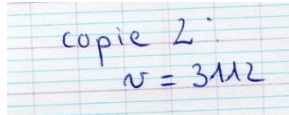 copie 2:
v = 3112